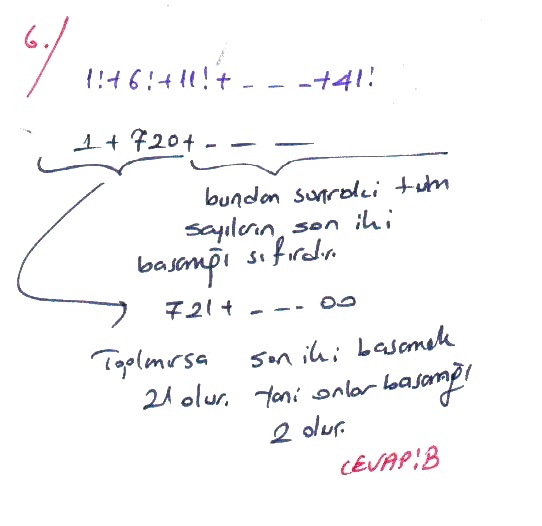 6./
1!+6!+11!+ - - -+41!
1 + 720+ - - -
bundan sonraki tüm
sayıların son iki
basamağı sıfırdır.
721+ - - - 00
Toplanırsa son iki basamak
21 olur. Yani onlar basamağı
2 olur.
CEVAP:B